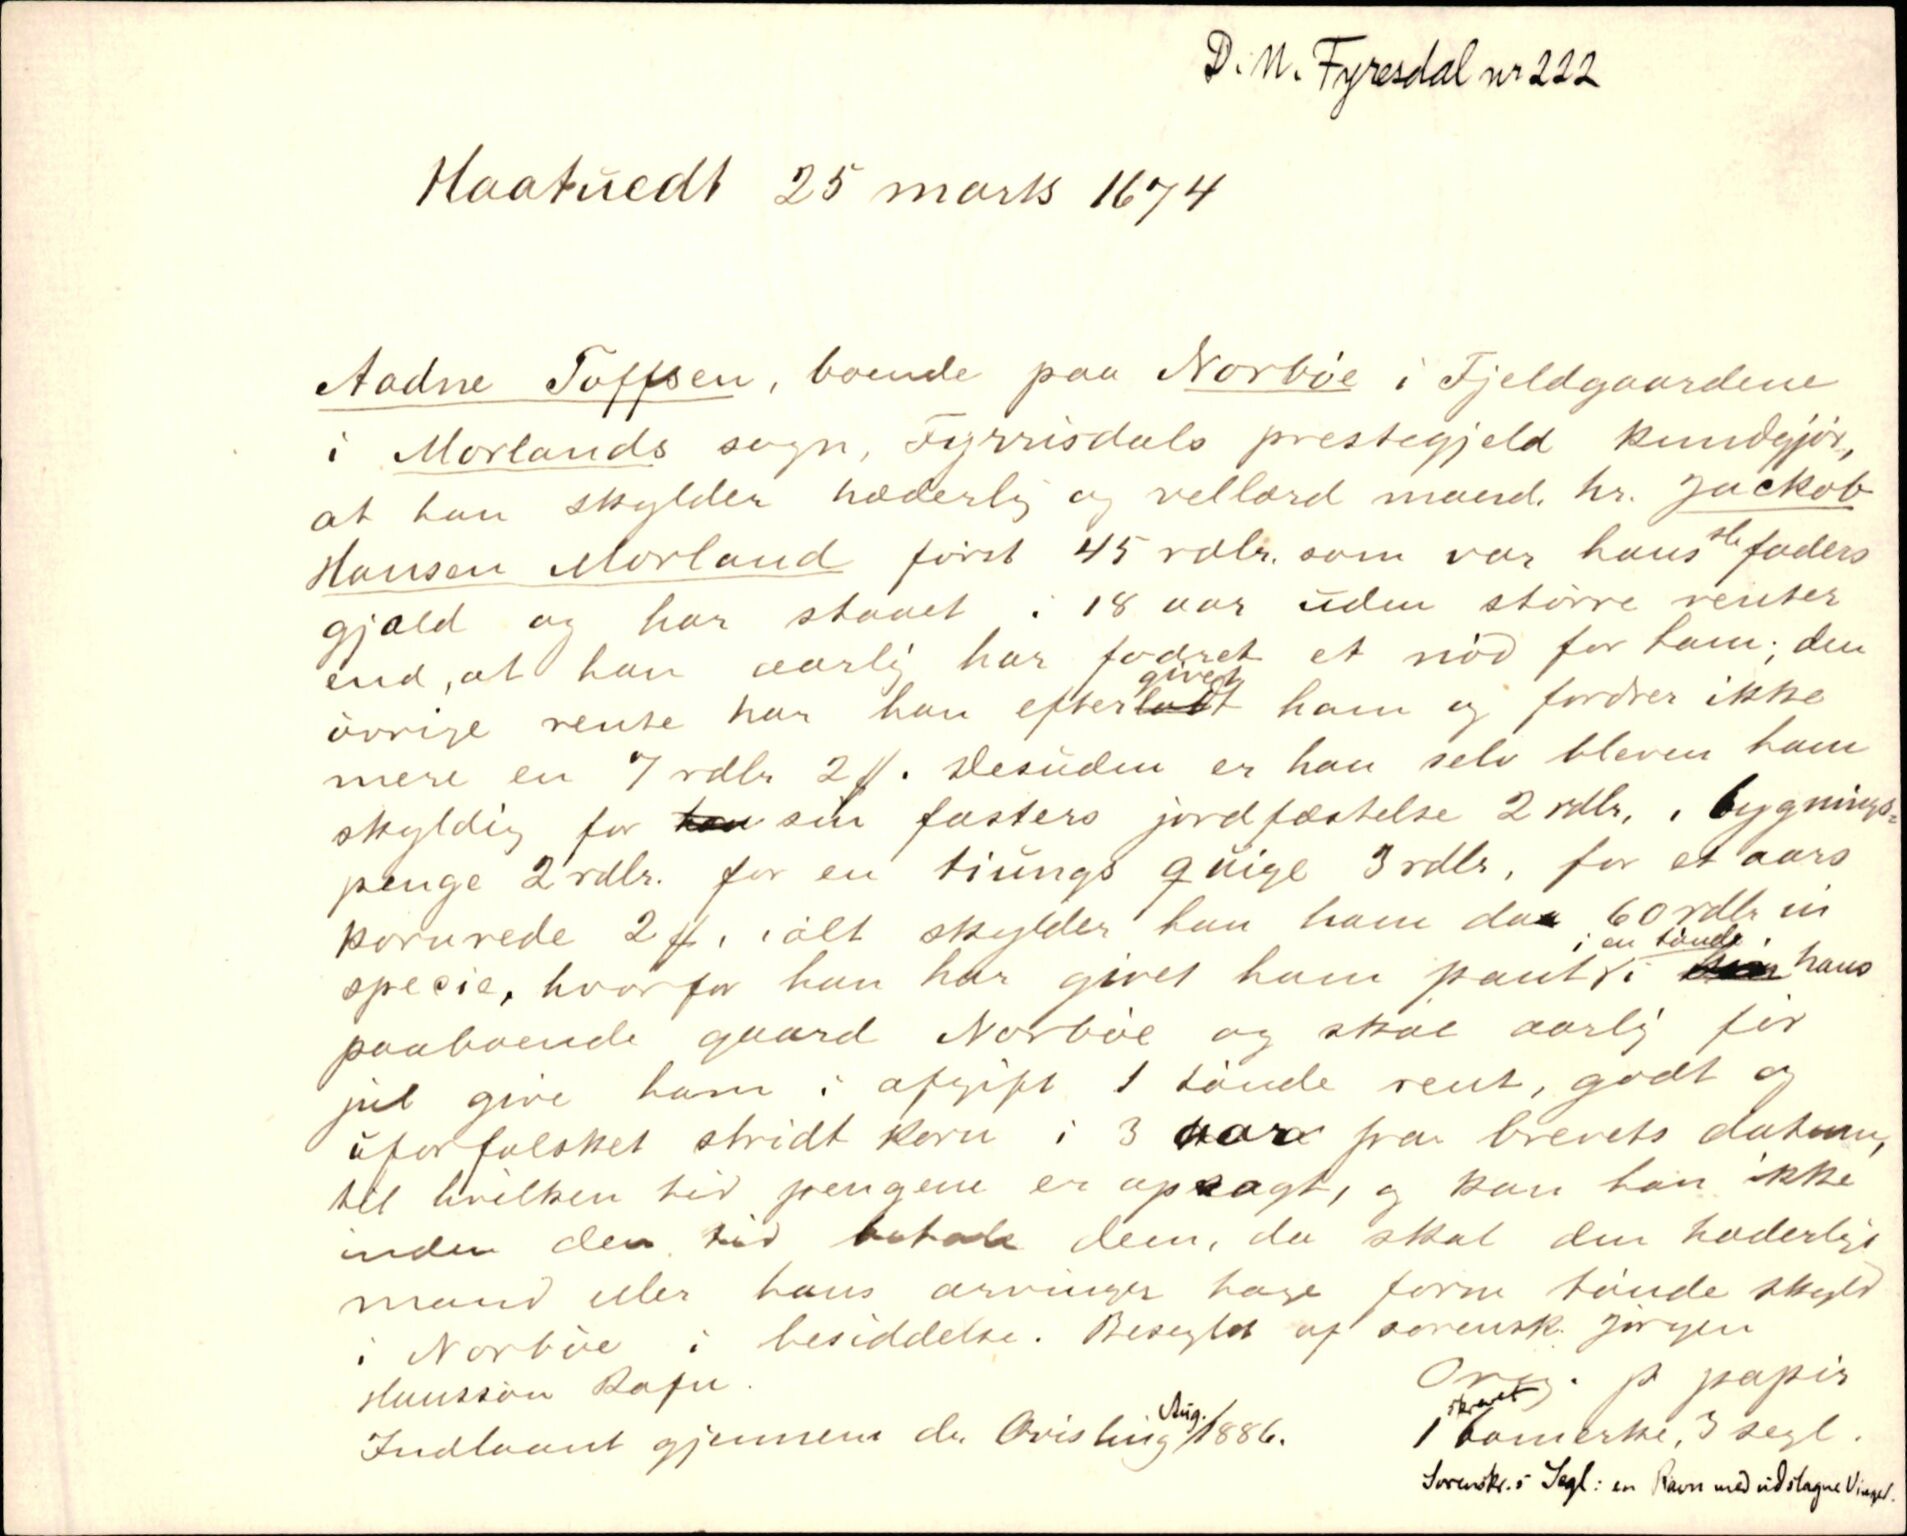 D. N. Fyresdal nr 222
Haatuedt 25 marts 1674
Aadne Toffsen, boende paa Norbøe i Fjeldgaardene
i Morlands sogn, Fyrrisdals prestegjeld kundgjør,
at han skylder hæderlig og vellærd mand. hr. Jackob
Hansen Morland først 45 rdlr. som var hans sle faders
gjæld og har staaet i 18 aar uden større renter
end, at han aarlig har fodret et nød for ham; den
øvrige rente har han eftergivet ham og fordrer ikke
mere en 7 rdlr 2 ff. Desuden er han selv bleven ham
skyldig for sin fasters jordfæstelse 2 rdlr., i bygnings-
penge 2 rdlr. for en tiungs quige 3 rdlr, for et aars
kornrede 2 ff, ialt skylder han ham da 60 rdlr in
specie, hvorfor han har givet ham pant i en tønde i hans
paaboende gaard Norbøe og skal aarlig før
jul give ham i afgift 1 tønde rent, godt og
uforfalsket stridt korn i 3 aar fra brevets datum,
til hvilken tid pengene er opsagt, og kan han ikke
inden den tid betale dem, da skal den hæderlige
mand eller hans arvinger have forne tønde skyld
i Norbøe i besiddelse. Beseglet af sorensk. Jørgen
Hanssøn Rafn.
Orig. p papir
1 skrevet bomerke, 3 segl.
Indlaant gjennem dr. Qvisling Aug. 1886.
Sorenskr.s Segl: en Ravn med udslagne Vinger.